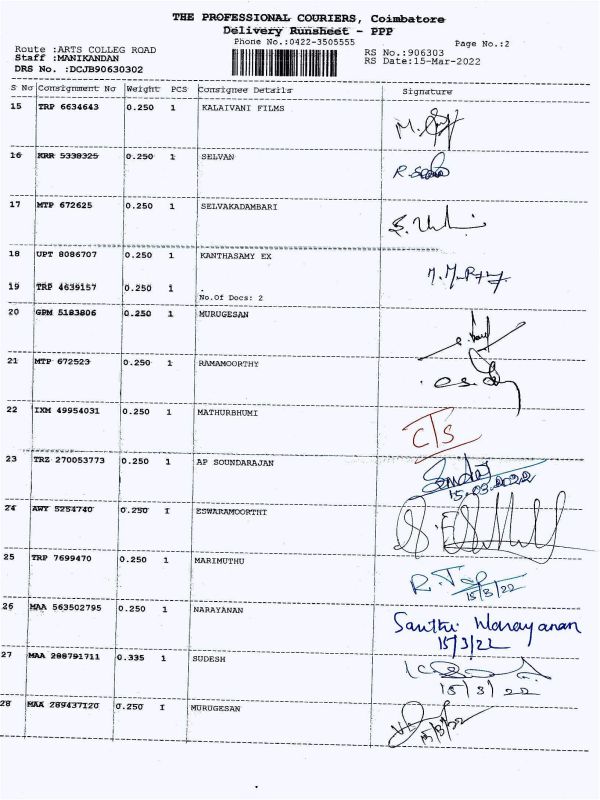 THE PROFESSIONAL COURIERS, Coimbatore
Delivery Runsheet - PPP
Phone No.:0422-3505555
Page No.:2
Route :ARTS COLLEG ROAD
RS No.:906303
Staff :MANIKANDAN
RS Date:15-Mar-2022
DRS No. :DCJB90630302
S No Consignment No Weight PCS Consignee Details Signature
15 TRP 6634643 0.250 1 KALAIVANI FILMS
16 KRR 5338325 0.250 1 SELVAN
17 MTP 672625 0.250 1 SELVAKADAMBARI
18 UPT 8086707 0.250 1 KANTHASAMY EX
19 TRP 4639157 0.250 1 .
No.Of Docs: 2
20 GPM 5183806 0.250 1 MURUGESAN
21 MTP 672523 0.250 1 RAMAMOORTHY
22 IXM 49954031 0.250 1 MATHURBHUMI
CTS
23 TRZ 270053773 0.250 1 AP SOUNDARAJAN
15.03.2022
24 AWY 5254740 0.250 1 ESWARAMOORTHI
25 TRP 7699470 0.250 1 MARIMUTHU
15/3/22
26 MAA 563502795 0.250 1 NARAYANAN
Santhi Narayanan
15/3/22
27 MAA 288791711 0.335 1 SUDESH
15/3/22
28 MAA 289437120 0.250 1 MURUGESAN
15/3/22